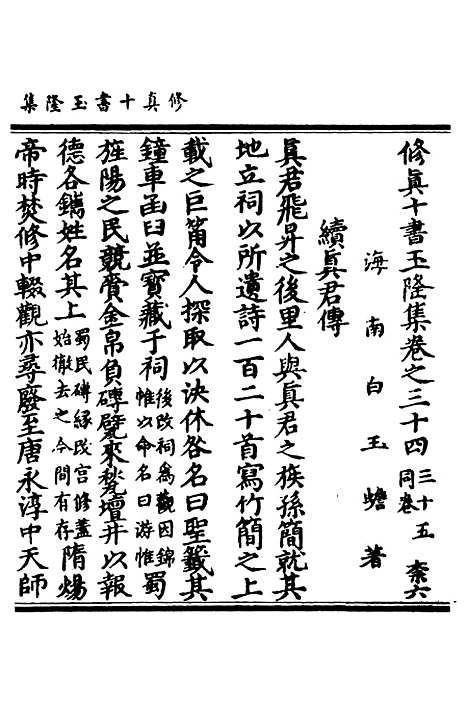 修真十書玉隆集
修眞十書玉隆集卷之三十四 三十五同卷 柰六
海南白玉蟾著
續眞君傳
眞君飛昇之後里人與眞君之族孫簡就其
地立祠以所遺詩一百二十首寫竹簡之上
載之巨筩令人探取以決休咎名曰聖籤其
鐘車函臼並寶藏于祠後改祠爲觀因錦帷以命名曰游帷蜀
旌陽之民競賫金帛負磚甓來甃壇井以報
德各鐫姓名其上蜀民磚緣改宮修蓋始撤去之今間有存隋煬
帝時焚修中輟觀亦尋廢至唐永淳中天師